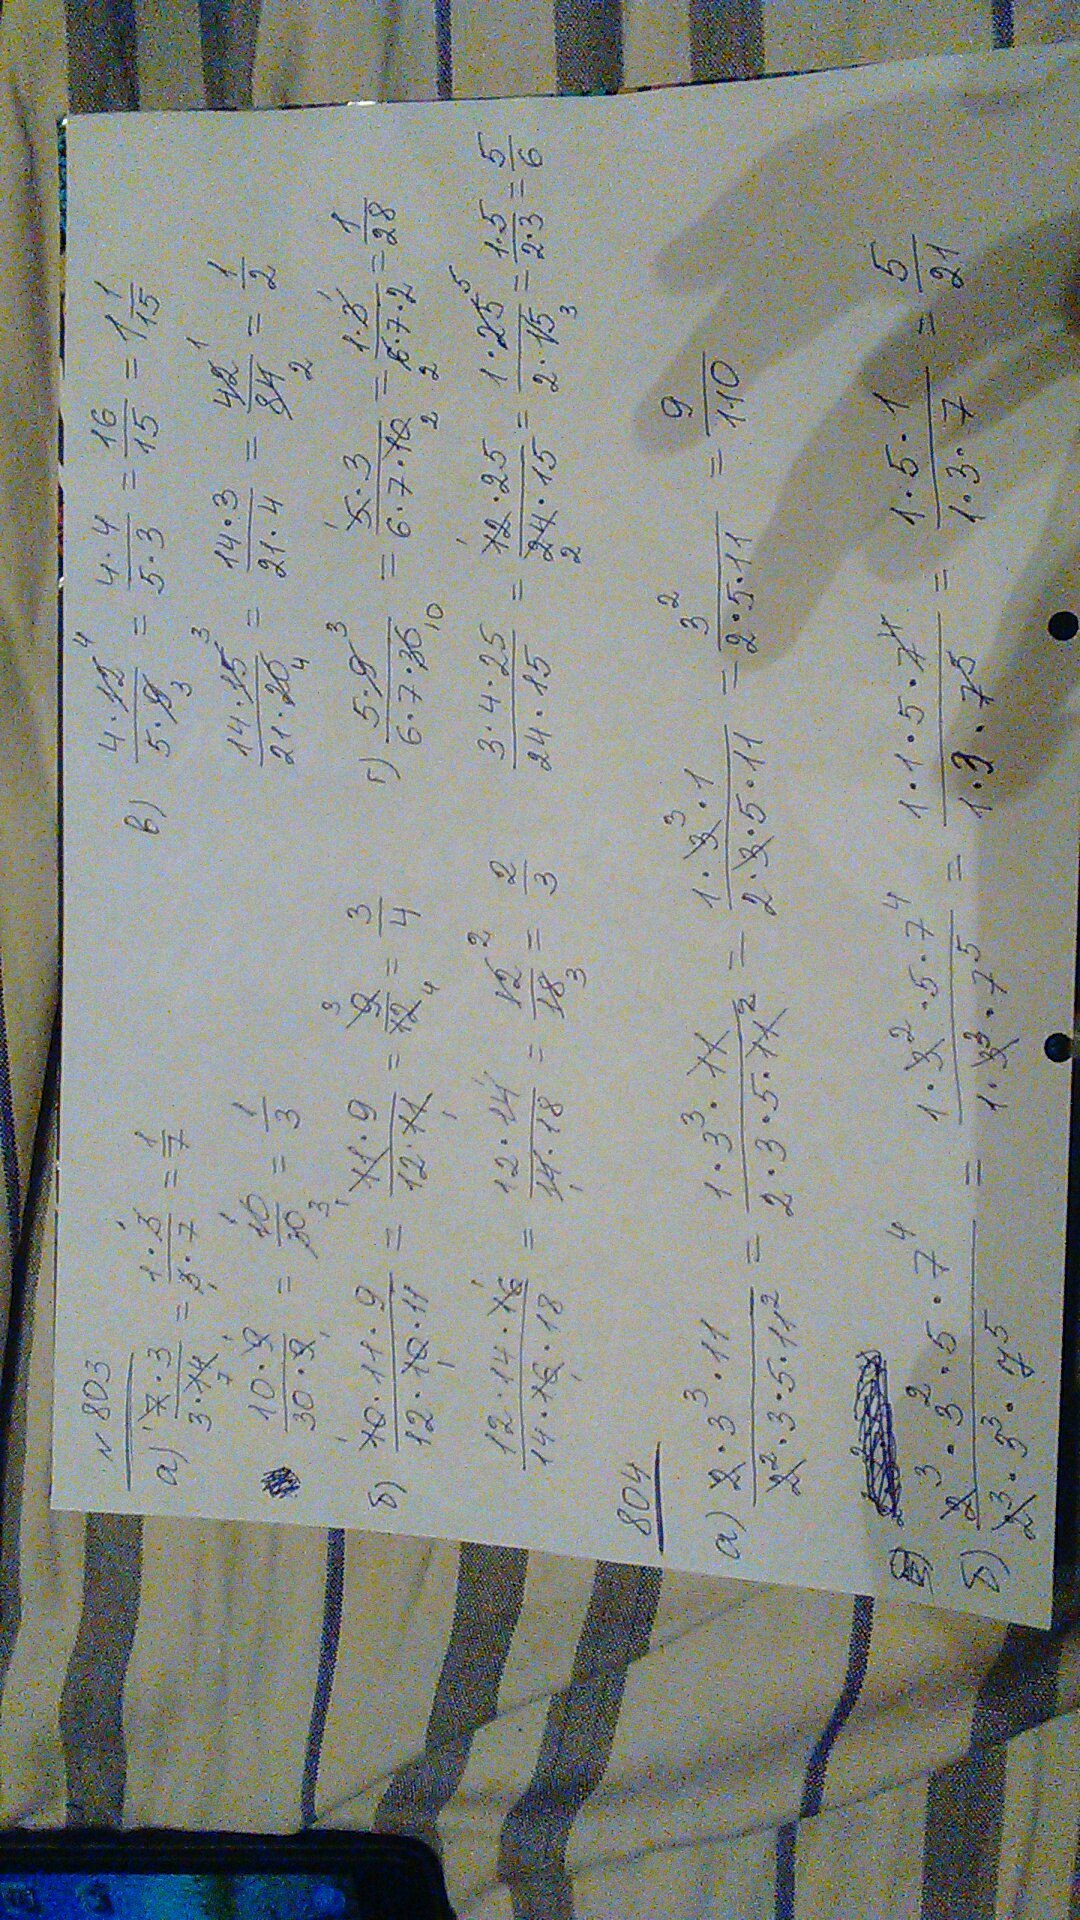 N 803
а) 7·3/3·14 = 1·3/3·7 = 1/7
10·9/30·9 = 10/30 = 1/3
б) 10·11·9/12·10·11 = 11·9/12·11 = 9/12 = 3/4
12·14·16/14·16·18 = 12·14/14·18 = 12/18 = 2/3
в) 4·12/5·9 = 4·4/5·3 = 16/15 = 1 1/15
14·15/21·20 = 14·3/21·4 = 42/84 = 1/2
г) 5·9/6·7·30 = 5·3/6·7·10 = 1·3/6·7·2 = 1/28
3·4·25/24·15 = 12·25/24·15 = 1·25/2·15 = 1·5/2·3 = 5/6
804
а) 2·3³·11/2²·3·5·11² = 1·3³·11/2·3·5·11² = 1·3³·1/2·3·5·11 = 3²/2·5·11 = 9/110
б) 2³·3²·5·7⁴/2³·3³·7⁵ = 1·3²·5·7⁴/1·3³·7⁵ = 1·1·5·7⁴/1·3·7⁵ = 1·5·1/1·3·7 = 5/21